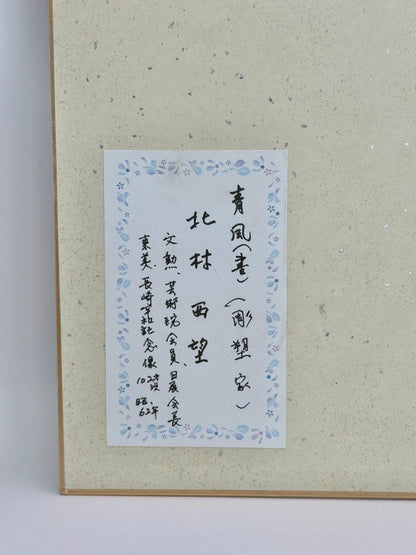 青風(書)(彫塑家)
北村西望
文勲、芸術院会員、日展会長
東美、長崎平和記念像 102才頃 昭.62年